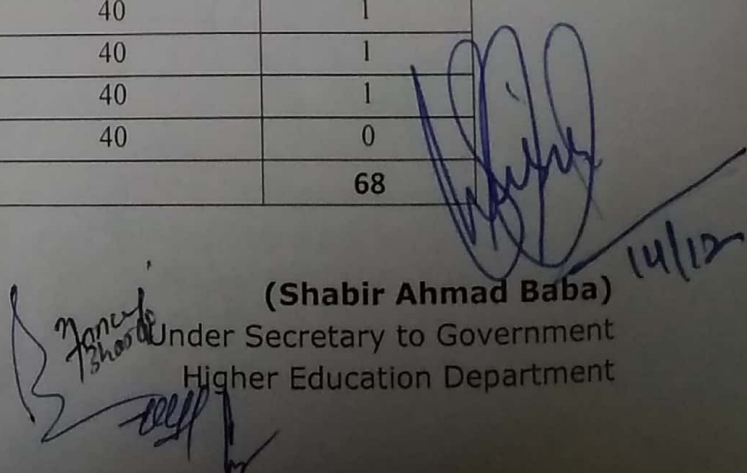 40 1
40 1
40 1
40 0
68
14/12
(Shabir Ahmad Baba)
Under Secretary to Government
Higher Education Department